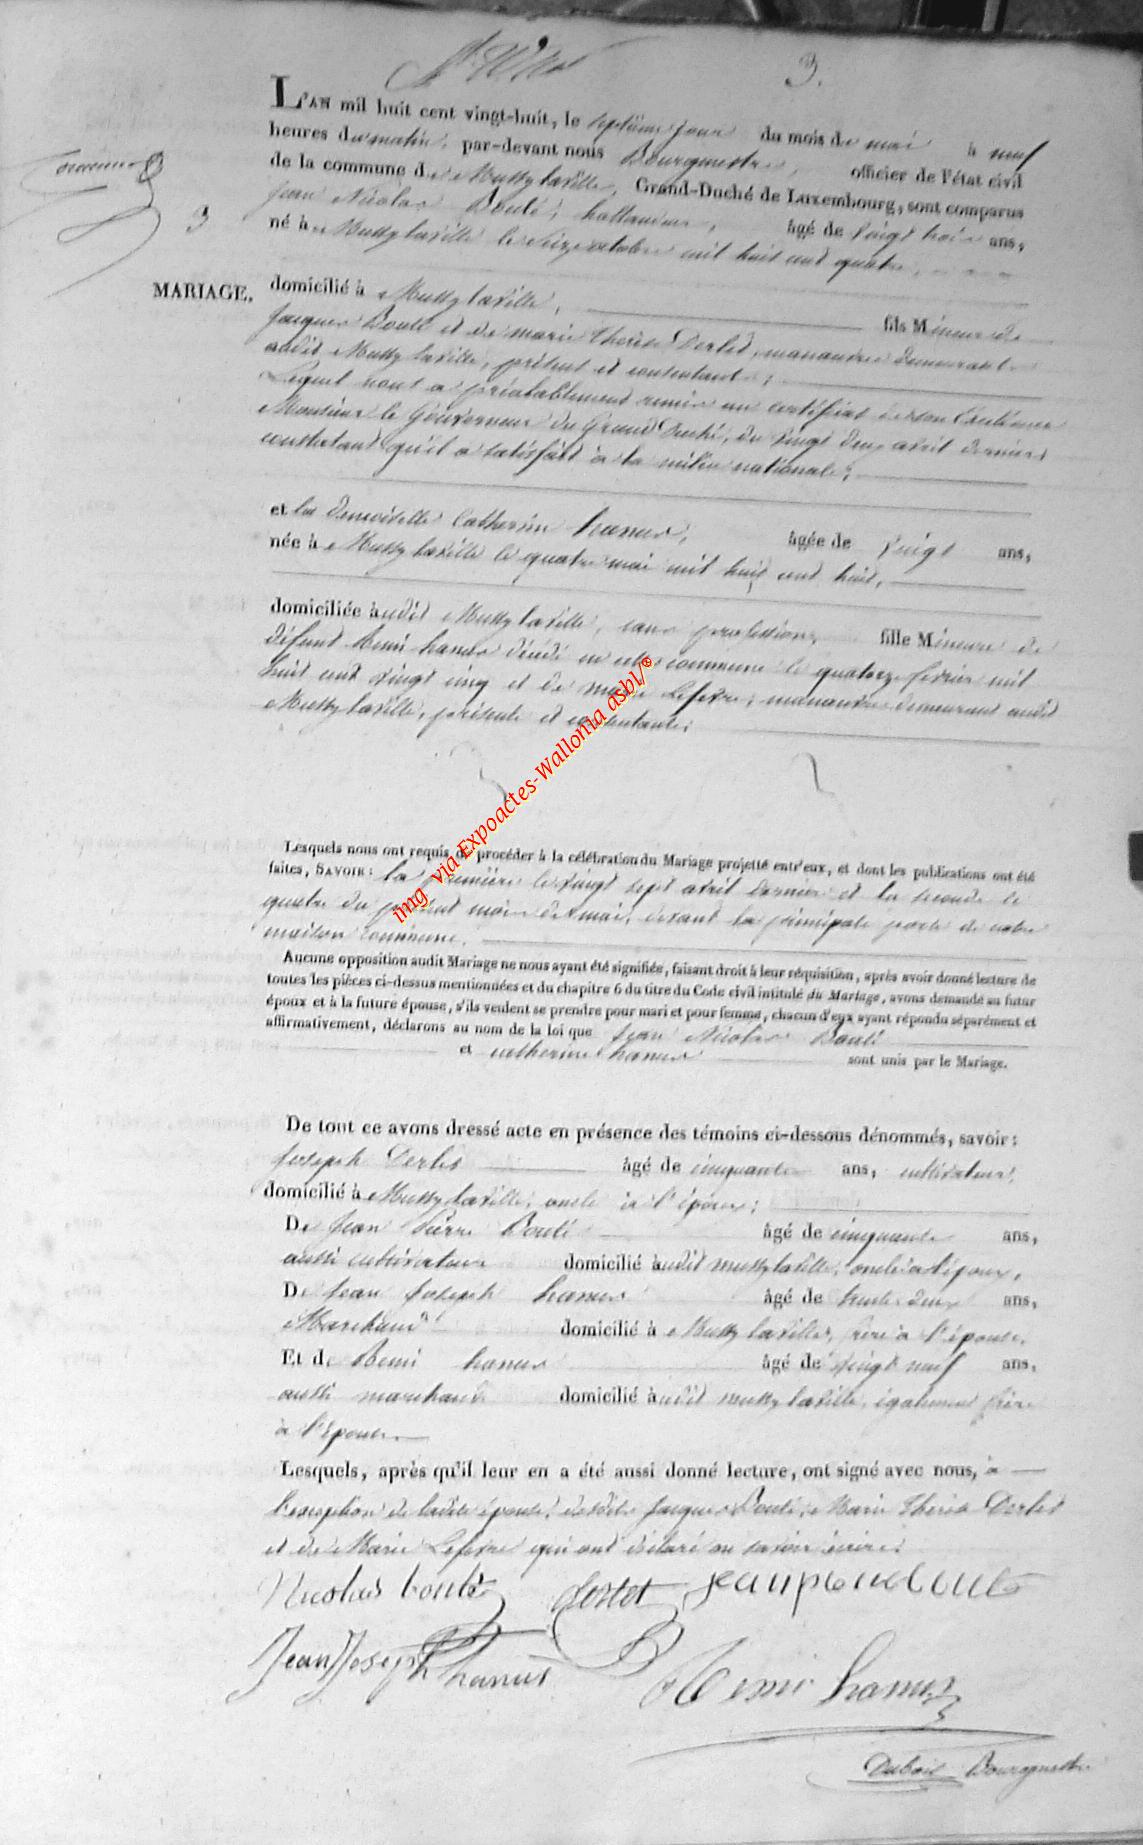 3.
L'AN mil huit cent vingt-huit, le septième jour du mois de mai à neuf
heures du matin, par-devant nous Bourguestre, officier de l'état civil
de la commune de Mussy laville, Grand-Duché de Luxembourg, sont comparus
Jean Nicolas Bouté, âgé de vingt trois ans,
né à Mussy laville le seize octobre mil huit cent quatre,
3
MARIAGE.
domicilié à Mussy laville, fils Mineur de
Jacques Bouté et de marie thérèse Derlet, manandre demeurant
audit Mussy laville, présents et consentants;
Lequel nous a préalablement remis un certificat de son Excellence
Monsieur le Gouverneur du Grand Duché, du vingt deux avril dernier
constatant qu'il a satisfait à la milice nationale;
et la demoiselle Catherine hanus, âgée de vingt ans,
née à Mussy laville le quatre mai mil huit cent huit,
domiciliée audit Mussy laville, sans profession, fille Mineure de
défunt Remi hanus décédé en cette commune le quatorze février mil
huit cent vingt cinq et de marie Lefevre, manandre demeurant audit
Mussy laville, présente et consentante;
img via Expoactes-Wallonia asbl/®
Lesquels nous ont requis de procéder à la célébration du Mariage projetté entr'eux, et dont les publications ont été
faites, SAVOIR: la première le vingt sept avril dernier et la seconde le
quatre du présent mois de mai, devant la principale porte de notre
maison commune.
Aucune opposition audit Mariage ne nous ayant été signifiée, faisant droit à leur réquisition, après avoir donné lecture de
toutes les pièces ci-dessus mentionnées et du chapitre 6 du titre du Code civil intitulé du Mariage, avons demandé au futur
époux et à la future épouse, s'ils veulent se prendre pour mari et pour femme, chacun d'eux ayant répondu séparément et
affirmativement, déclarons au nom de la loi que Jean Nicolas Bouté
et catherine hanus sont unis par le Mariage.
De tout ce avons dressé acte en présence des témoins ci-dessous dénommés, savoir:
Joseph Derlet âgé de cinquante ans, cultivateur,
domicilié à Mussy laville, oncle à l'époux;
De Jean Pierre Bouté âgé de cinquante ans,
aussi cultivateur domicilié audit mussy laville, oncle à l'époux,
De Jean Joseph hanus âgé de trente deux ans,
Marchand domicilié à Mussy laville, frère à l'épouse.
Et de Remi hanus âgé de vingt neuf ans,
aussi marchand domicilié audit mussy laville, également frère
à l'Epouse
Lesquels, après qu'il leur en a été aussi donné lecture, ont signé avec nous, à
l'exception de ladite épouse, desdits Jacques Bouté, Marie thérèse Derlet
et de Marie Lefevre qui ont déclaré ne savoir écrire.
Nicolas boute Jean pierre boute
Jean Joseph hanus
Remi hanus
Dubois Bourguestre